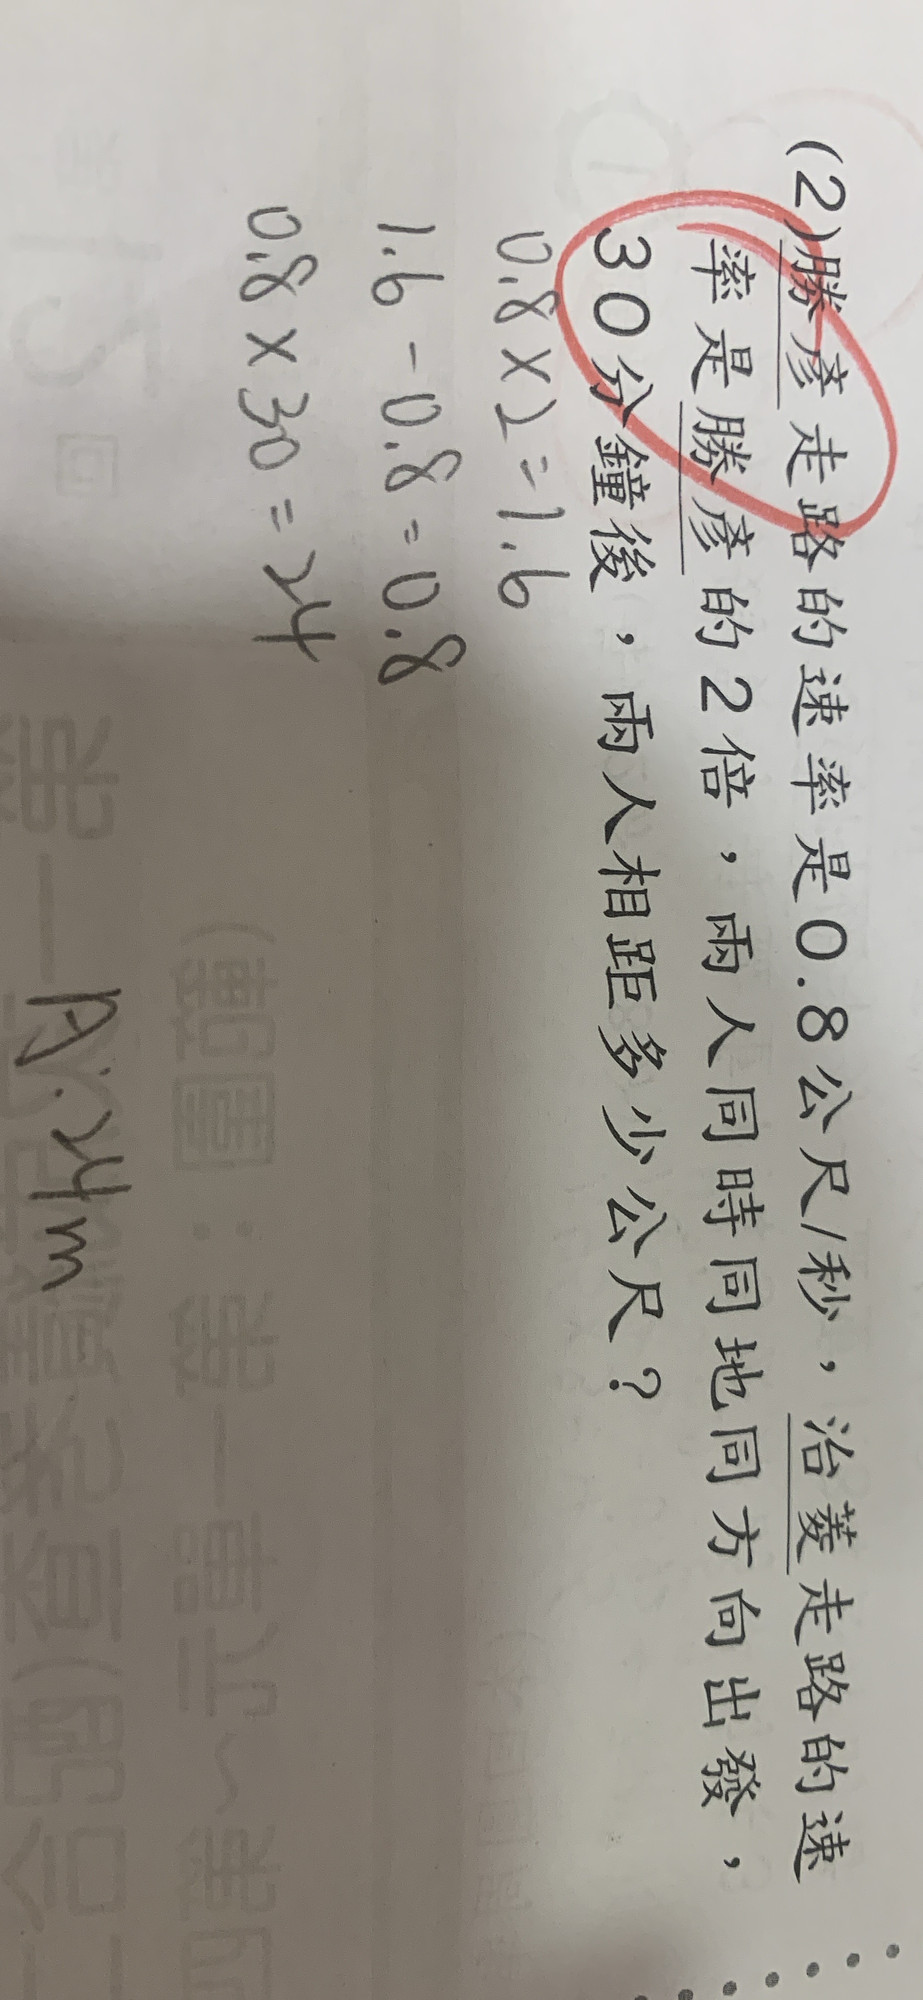 (2)勝彥走路的速率是0.8公尺/秒，治菱走路的速
率是勝彥的2倍，兩人同時同地同方向出發，
30分鐘後，兩人相距多少公尺？
0.8×2=1.6
1.6-0.8=0.8
0.8×30=24
A:24m